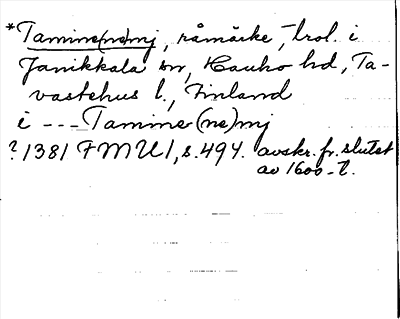 *Tamine(ne)mj, råmärke, trol. i
Janikkala sn, Hauho hd, Ta-
vastehus l., Finland
i --- Tamine(ne)mj
? 1381 FMU 1, s. 494. avskr. fr. slutet
av 1600-t.